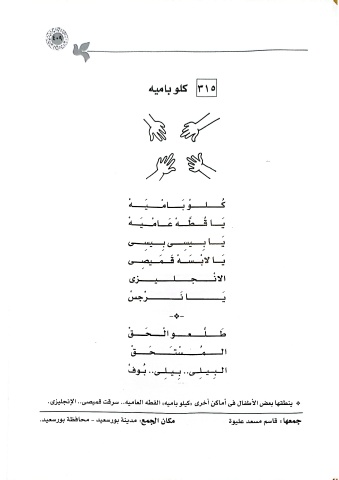 ٤٠٩
٣١٥ كلو باميه
كُـلُـو بَـامْـيَـهْ
يَـا قُـطَّـهْ عَـامْـيَـهْ
يَـا بِـيـسِـى بِـيـسِـى
يَـا لابْـسَـهْ قَـمِـيـصِـى
الانْـجـلِـيـزِى
يَـا نَـرْجِـسْ
-*-
طَـلَّـعُـو الْـحَـقْ
الْـمُـسْـتَـحَـقْ
الـبِـيـلِـى.. بِـيـلِـى.. بُـوفْ
* ينطقها بعض الأطفال فى أماكن أخرى «كيلو باميه، القطه العاميه.. سرقت قميصى.. الإنجليزى.
جمعها: قاسم مسعد عليوة مكان الجمع: مدينة بورسعيد - محافظة بورسعيد.